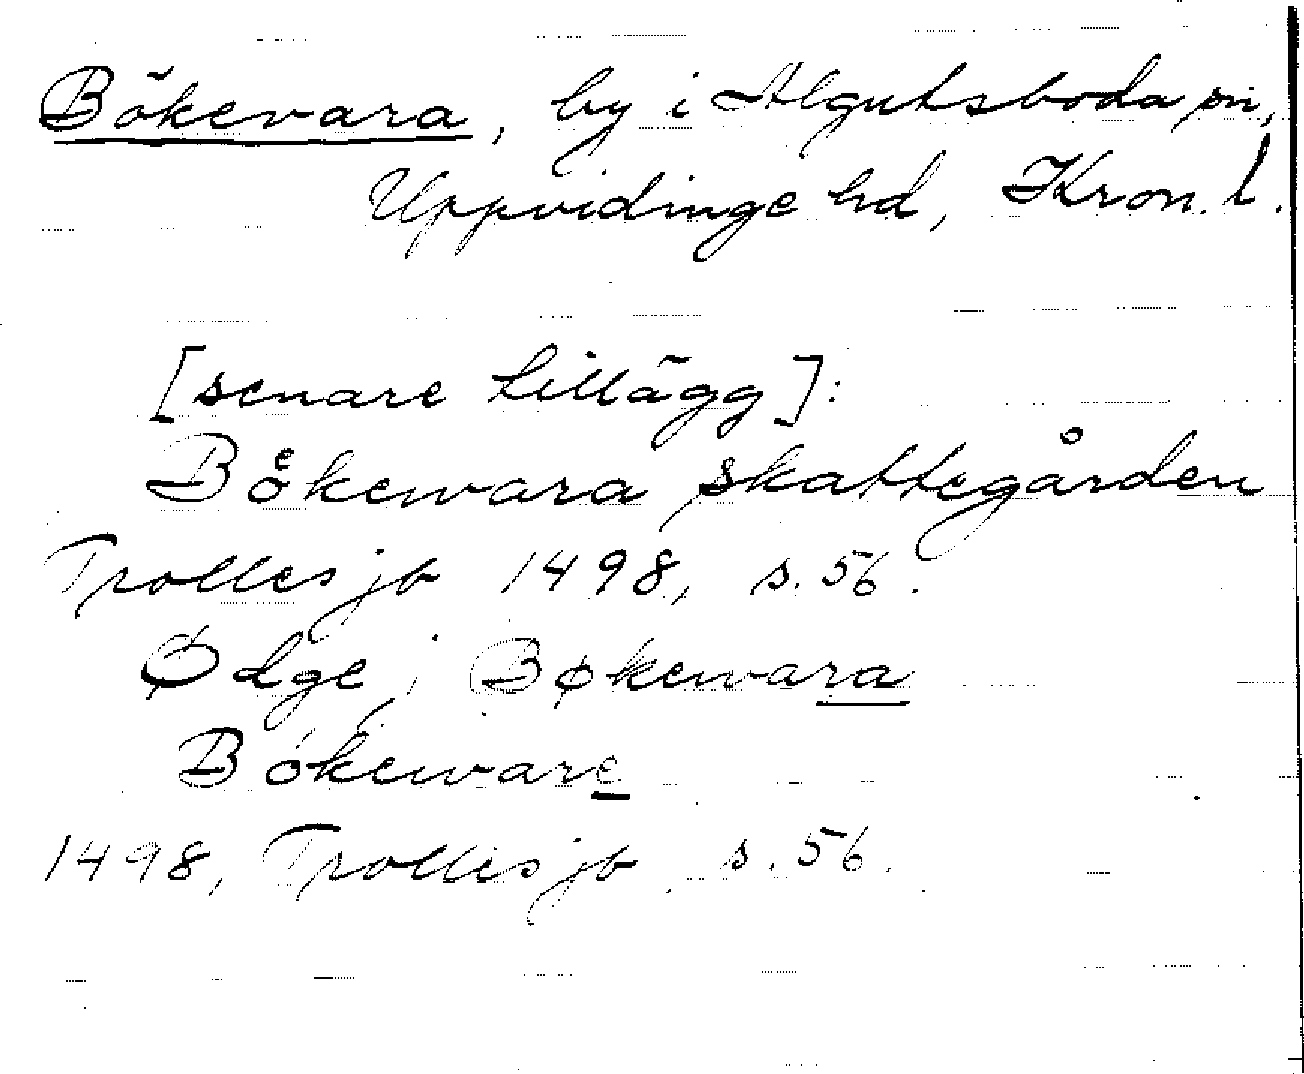 Bökevara, by i Algutsboda sn,
Uppvidinge hd, Kron. l.
[senare tillägg]:
Boͤkewara skattegården
Trolles jb 1498, s. 56.
Ødge i Bøkewara
Bókeware
1498, Trolles jb s. 56.